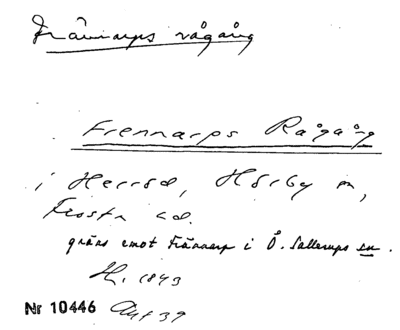 Frännarps rågång
Frennarps Rågång
i Herröd, Hörby sn,
Frosta hd.
gräns emot Frännarp i Ö. Sallerups sn.
H. 1843
Nr 10446 Akt 39